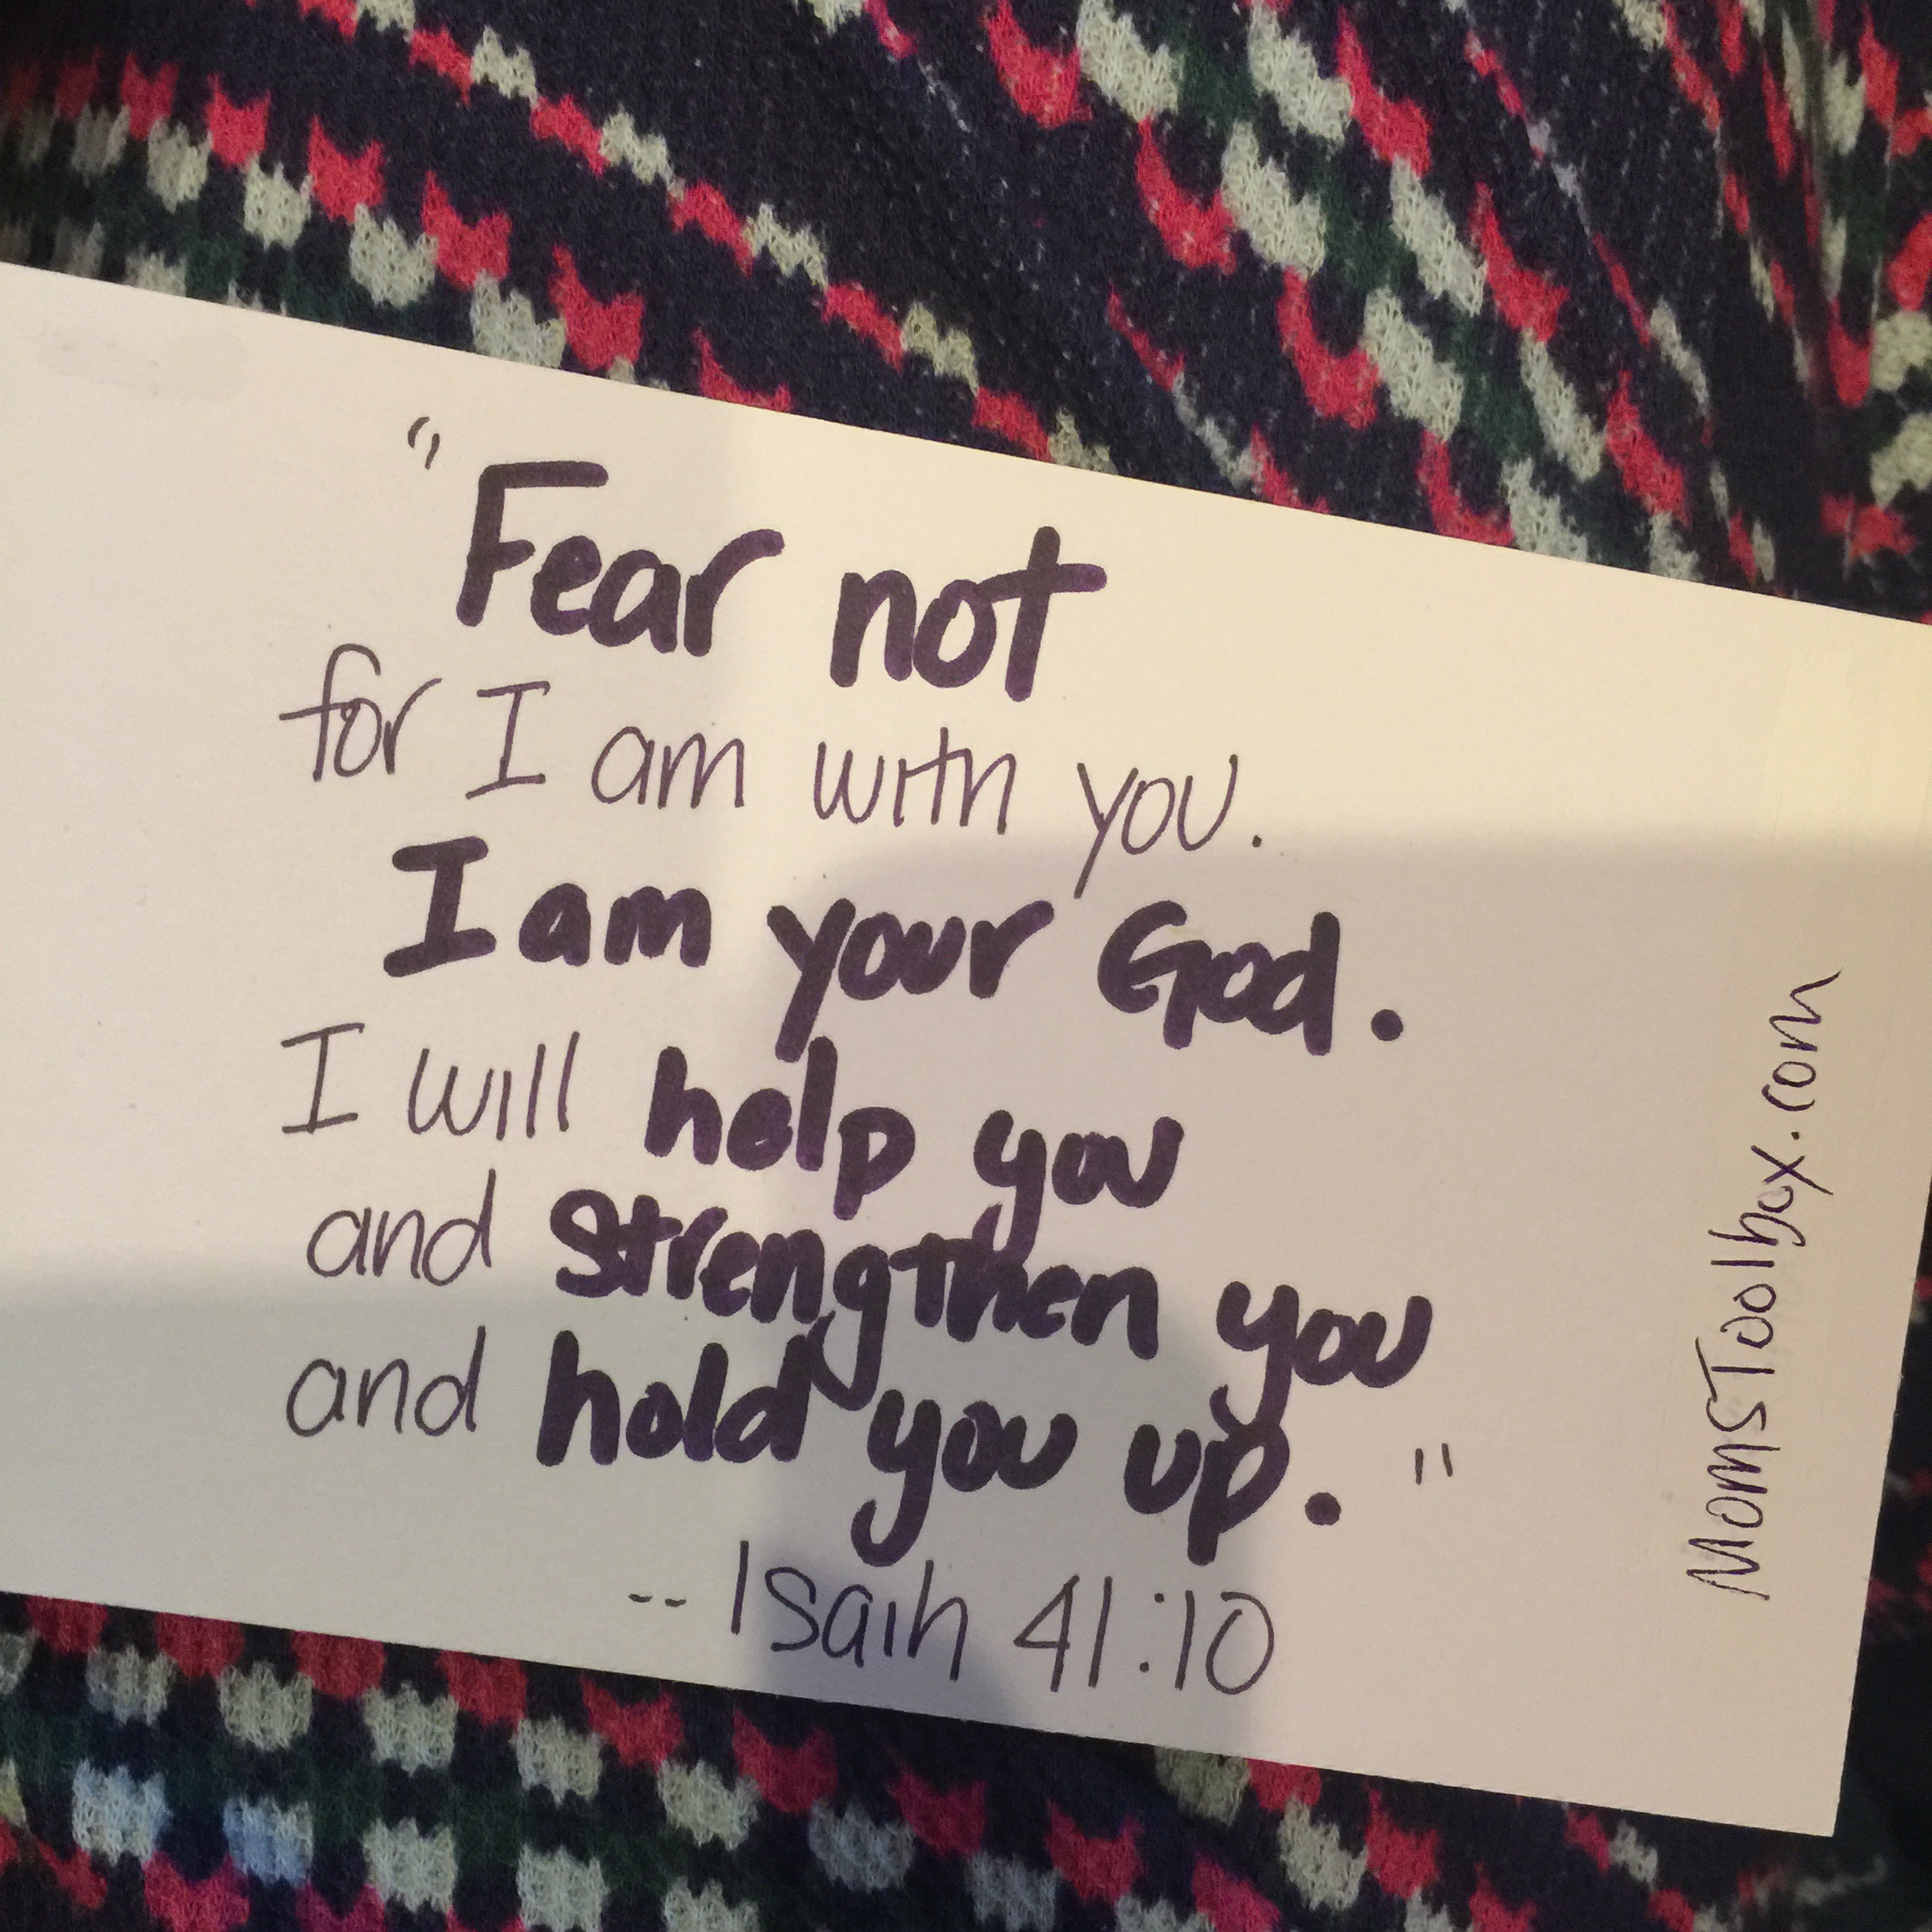 "Fear not
for I am with you.
I am your God.
I will help you
and strengthen you
and hold you up."
-- Isaih 41:10
MomsToolbox.com